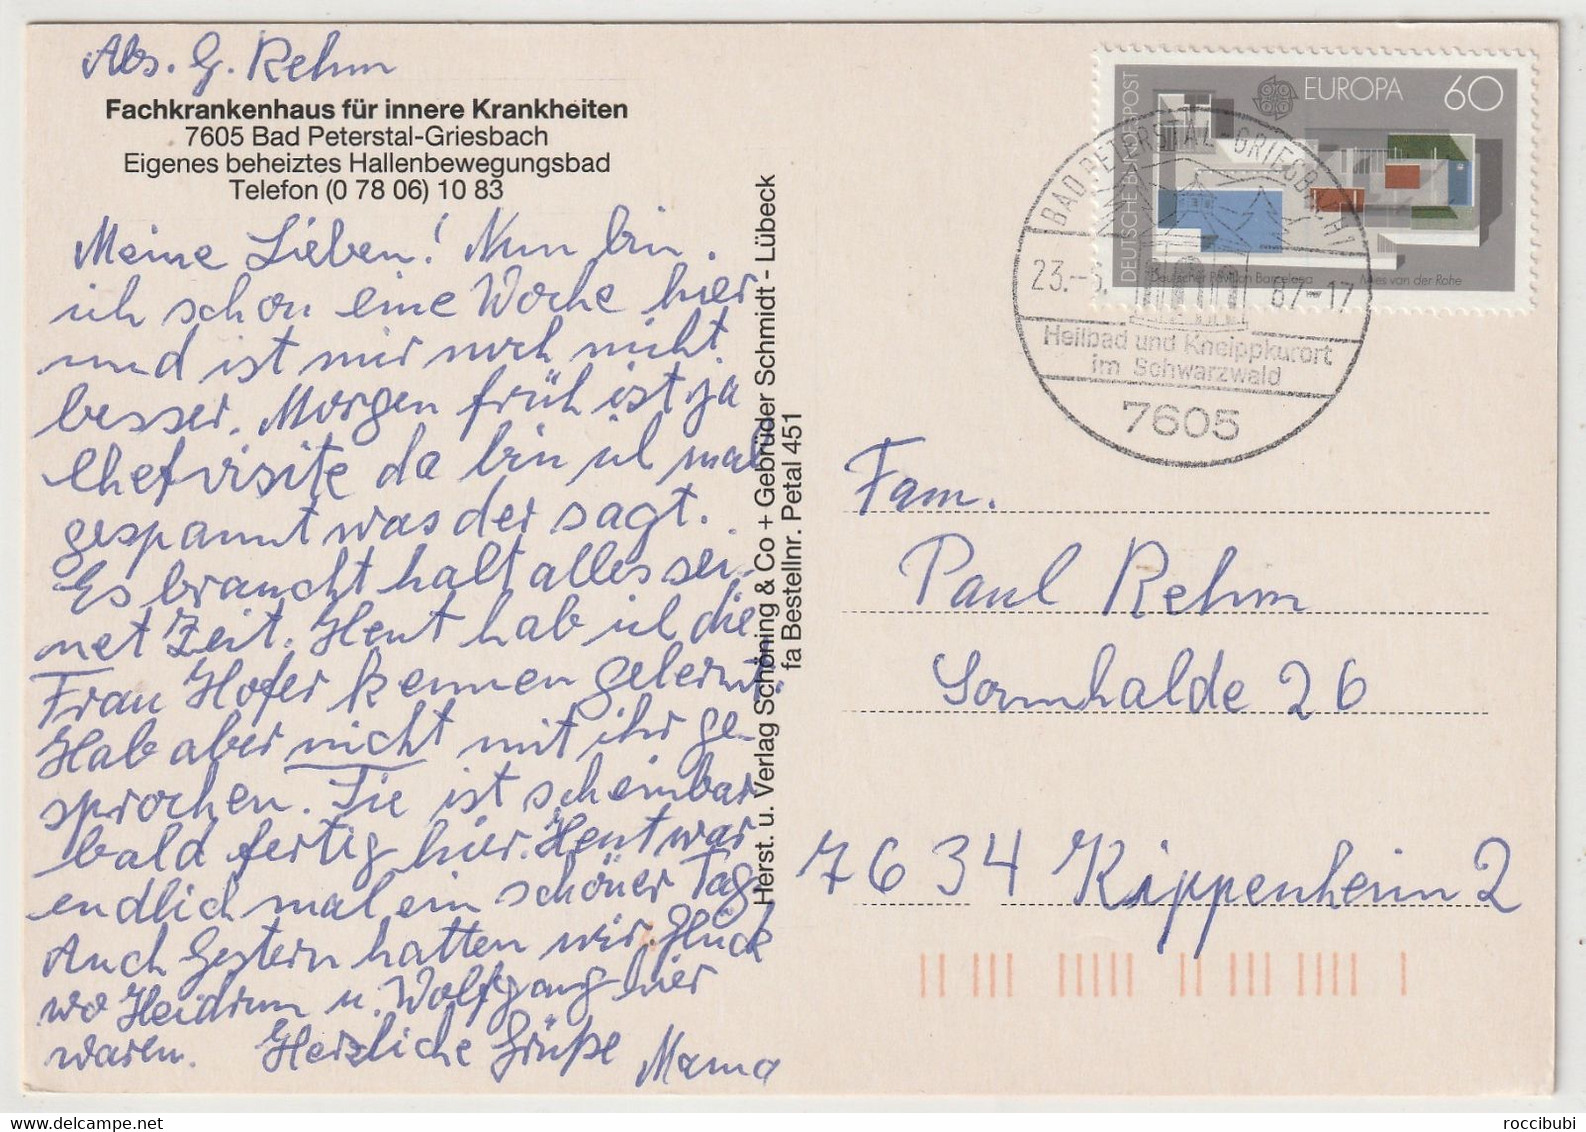 Abs. G. Rehm
Fachkrankenhaus für innere Krankheiten
7605 Bad Peterstal-Griesbach
Eigenes beheiztes Hallenbewegungsbad
Telefon (0 78 06) 10 83
Meine Lieben! Nun bin
ich schon eine Woche hier
und ist mir noch nicht
besser. Morgen früh ist ja
Chefvisite da bin ich mal
gespannt was der sagt.
Es braucht halt alles sei-
net Zeit. Heut hab ich die
Frau Hofer kennen gelernt.
Hab aber nicht mit ihr ge-
sprochen. Sie ist scheinbar
bald fertig hier. Heut war
endlich mal ein schöner Tag.
Auch Gestern hatten wir Glück
wo Heidrun u. Wolfgang hier
waren. Herzliche Grüße Mama
Herst. u. Verlag Schöning & Co + Gebrüder Schmidt - Lübeck
fa Bestellnr. Petal 451
DEUTSCHE BUNDESPOST
EUROPA 60
Deutscher Pavillon Barcelona Mies van der Rohe
BAD PETERSTAL-GRIESBACH 1
23.-5. 87-17
Heilbad und Kneippkurort
im Schwarzwald
7605
Fam.
Paul Rehm
Sonnhalde 26
7634 Kippenheim 2
roccibubi